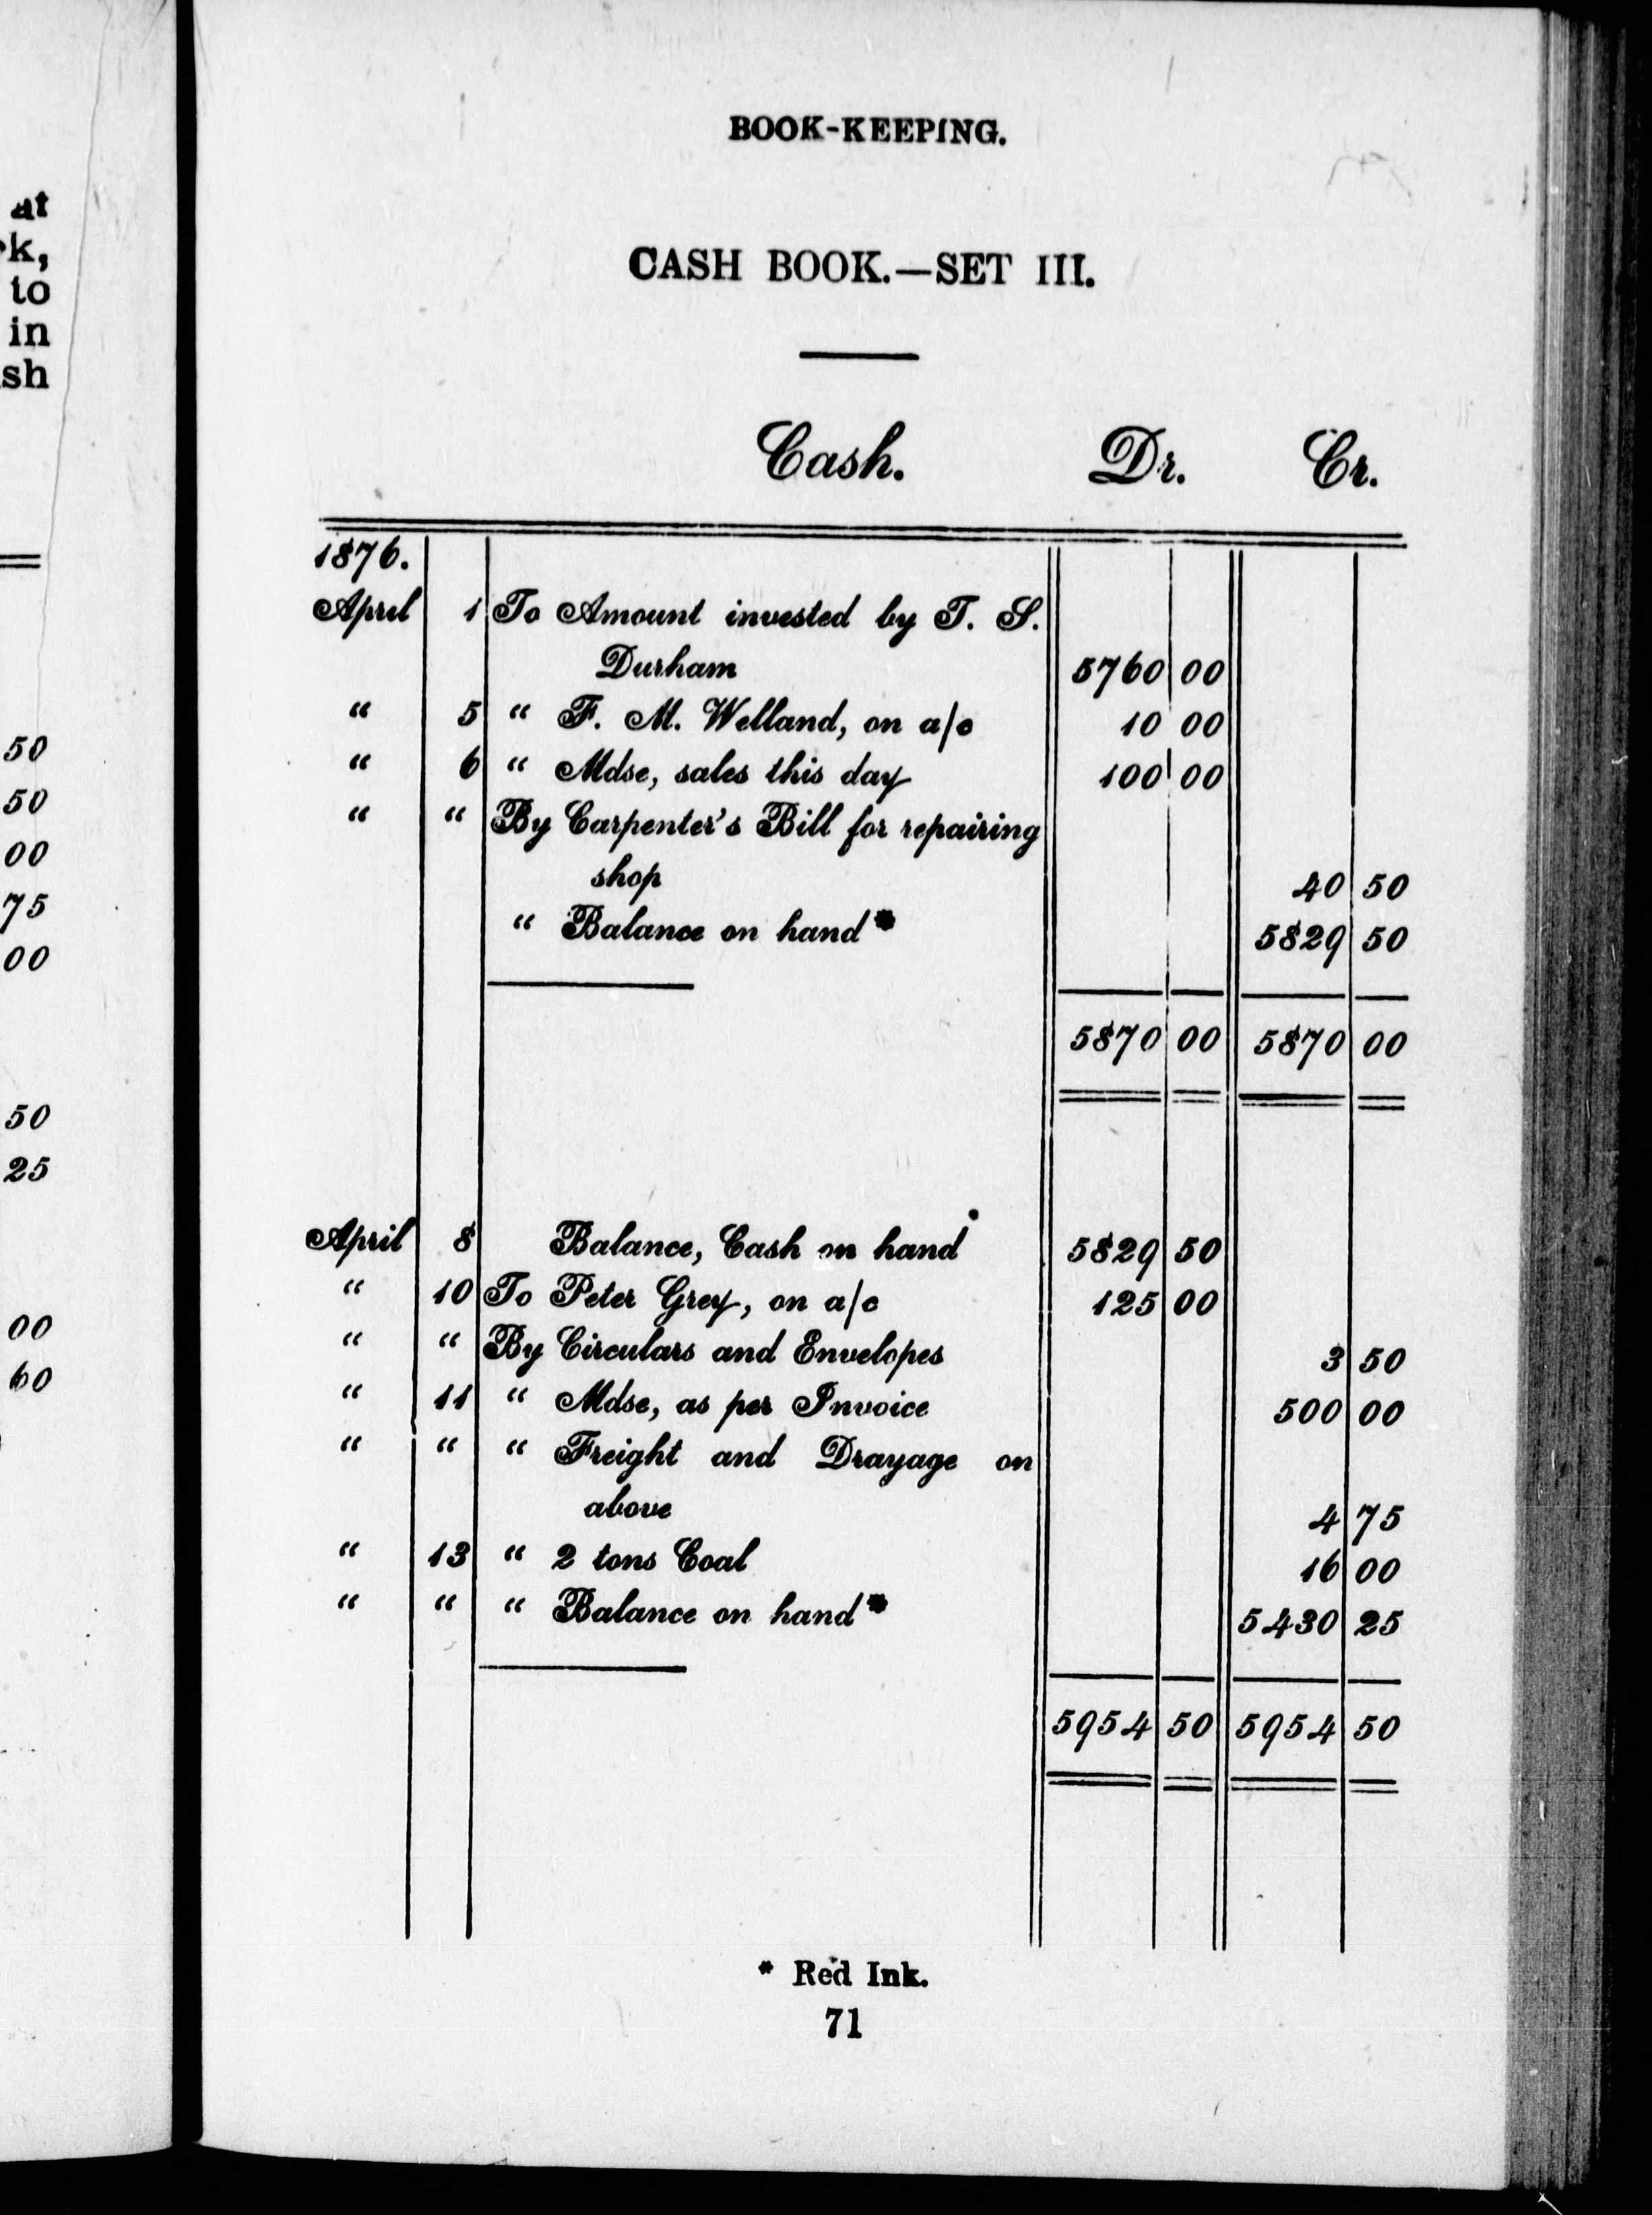 at
k,
to
in
sh
50
50
00
75
00
50
25
00
60
BOOK-KEEPING.
CASH BOOK.—SET III.
Cash. Dr. Cr.
1876.
April 1 To Amount invested by T. S.
Durham 5760 00
“ 5 “ F. M. Welland, on a/c 10 00
“ 6 “ Mdse, sales this day 100 00
“ “ By Carpenter's Bill for repairing
shop 40 50
“ Balance on hand* 5829 50
5870 00 5870 00
April 8 Balance, Cash on hand 5829 50
“ 10 To Peter Grey, on a/c 125 00
“ “ By Circulars and Envelopes 3 50
“ 11 “ Mdse, as per Invoice 500 00
“ “ “ Freight and Drayage on
above 4 75
“ 13 “ 2 tons Coal 16 00
“ “ “ Balance on hand* 5430 25
5954 50 5954 50
* Red Ink.
71